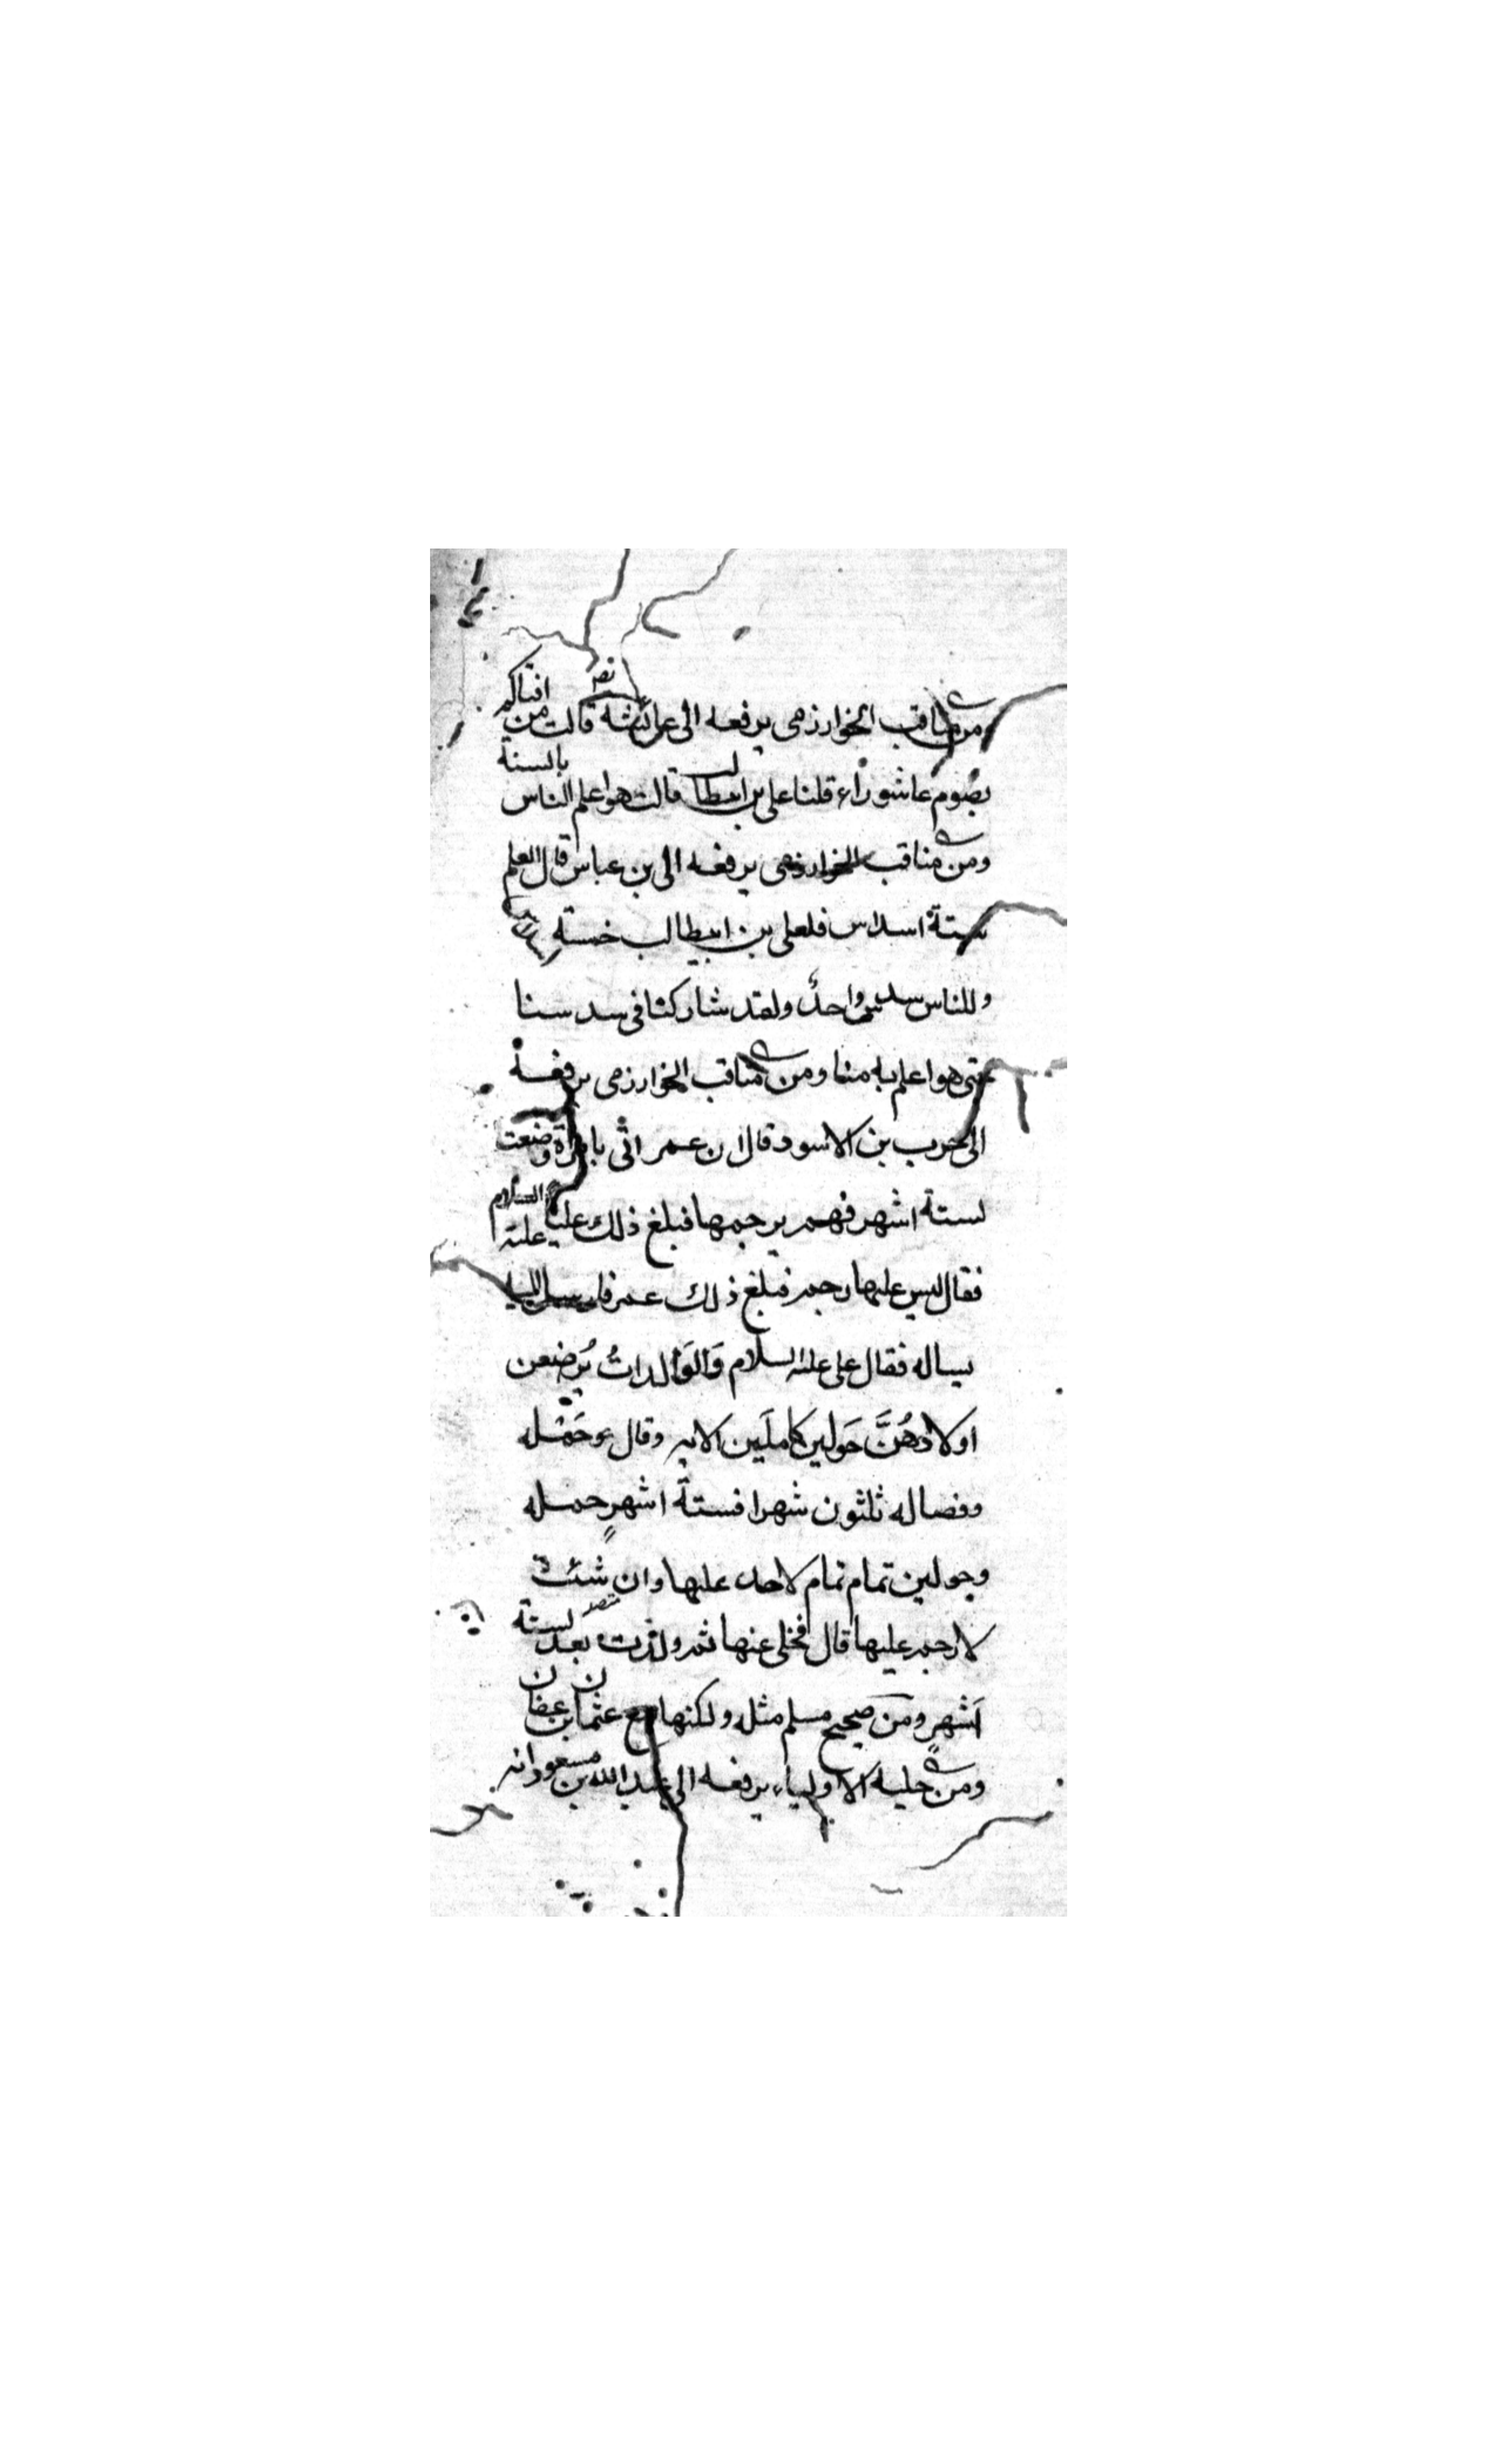 ومن مناقب الخوارزمي يرفعه الى عائشة قالت من افتاكم
بصوم عاشوراء قلنا علي بن ابيطالب قالت هو اعلم الناس بالسنة
ومن مناقب الخوارزمي يرفعه الى بن عباس قال العلم
ستة اسداس فلعلي بن ابيطالب خمسة
وللناس سدس واحد ولقد شاركنا في سدسنا
حتى هو اعلم به منا ومن مناقب الخوارزمي يرفعه
الى حرب بن الاسود قال ان عمر اتى بامراة وضعت
لستة اشهر فهم يرجمها فبلغ ذلك عليا عليه السلام
فقال ليس عليها رجم فبلغ ذلك عمر فارسل اليه
يساله فقال علي عليه السلام وَالوَالداتُ يُرضعن
اولادهُنَّ حَولين كاملَين الايه وقال وحَمْله
وفصاله ثلثون شهرا فستة اشهرٍ حمله
وحولين تمام تمام لاحد عليها وان شئت
لا رجم عليها قال فخلى عنها ثم ولدت بعد لستة
اَشهرٍ ومن صحيح مسلم مثله ولكنها مع عثمان بن عفان
ومن حلية الاولياء يرفعه الى عبد الله بن مسعود انه